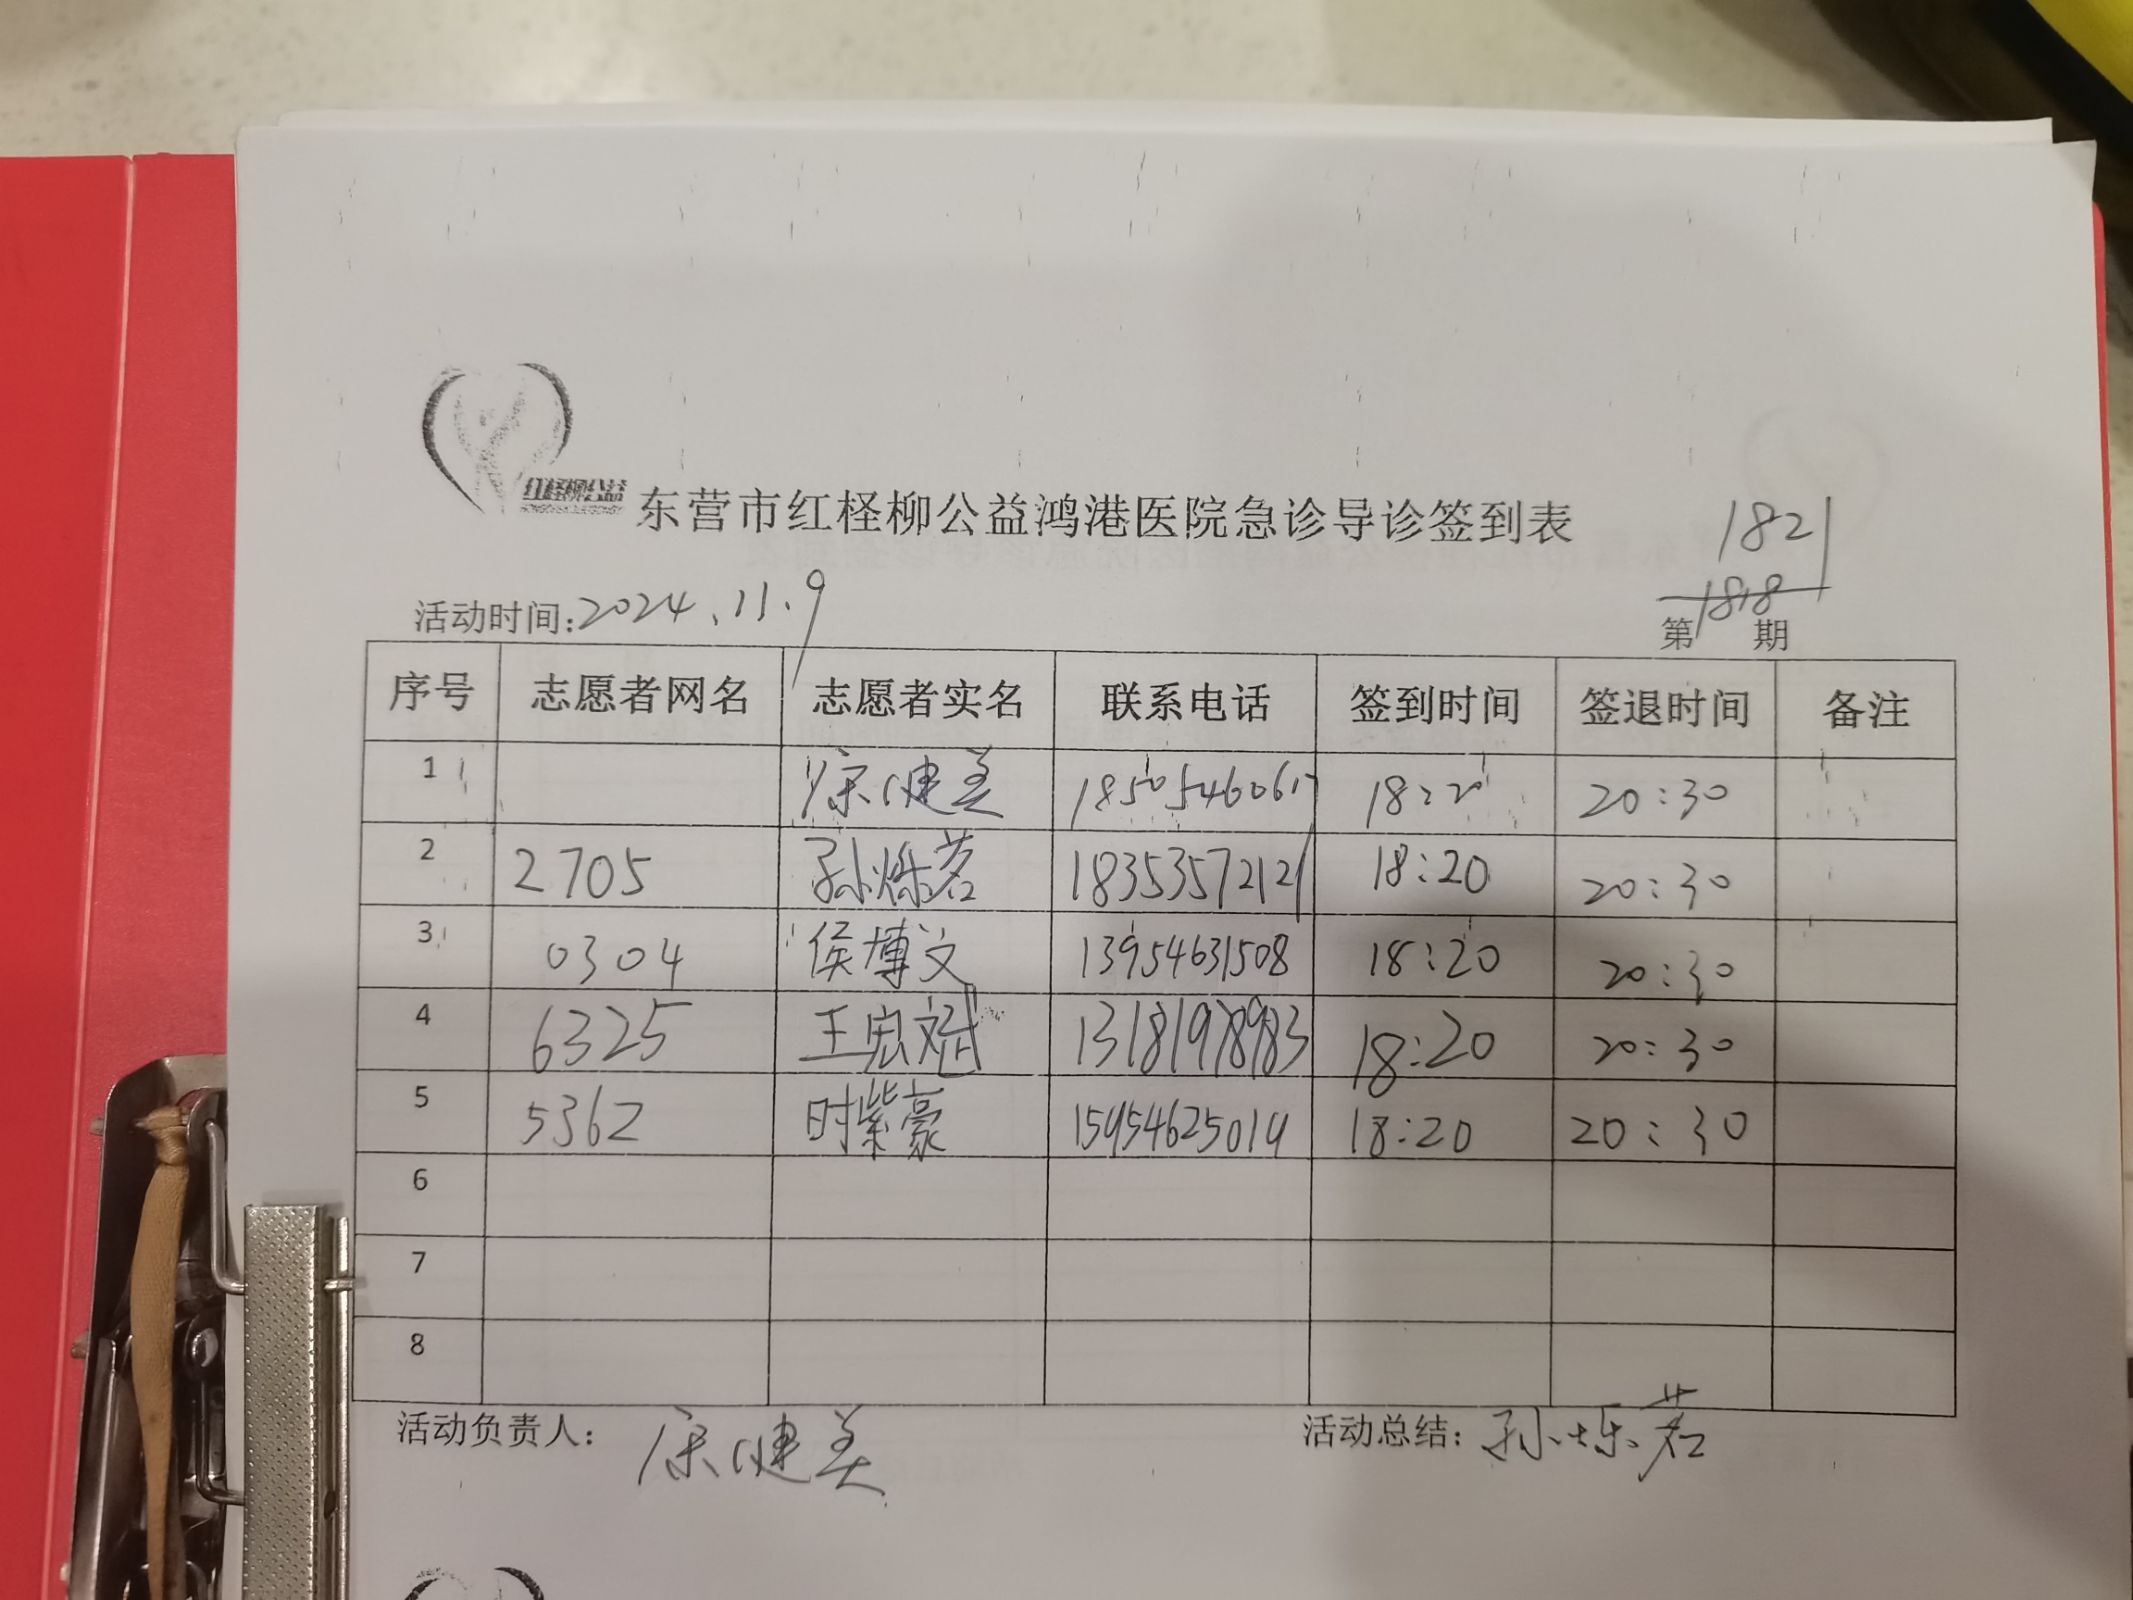 红柽柳公益
东营市红柽柳公益鸿港医院急诊导诊签到表
1821
1818
活动时间:2024.11.9 第 期
序号 志愿者网名 志愿者实名 联系电话 签到时间 签退时间 备注
1 宋健美 18505460617 18:20 20:30
2 2705 孙烁若 18353572121 18:20 20:30
3 0304 侯博文 13954631508 18:20 20:30
4 6325 王宏斌 13181978983 18:20 20:30
5 5362 时紫豪 15954625019 18:20 20:30
6
7
8
活动负责人: 宋健美 活动总结: 孙烁若